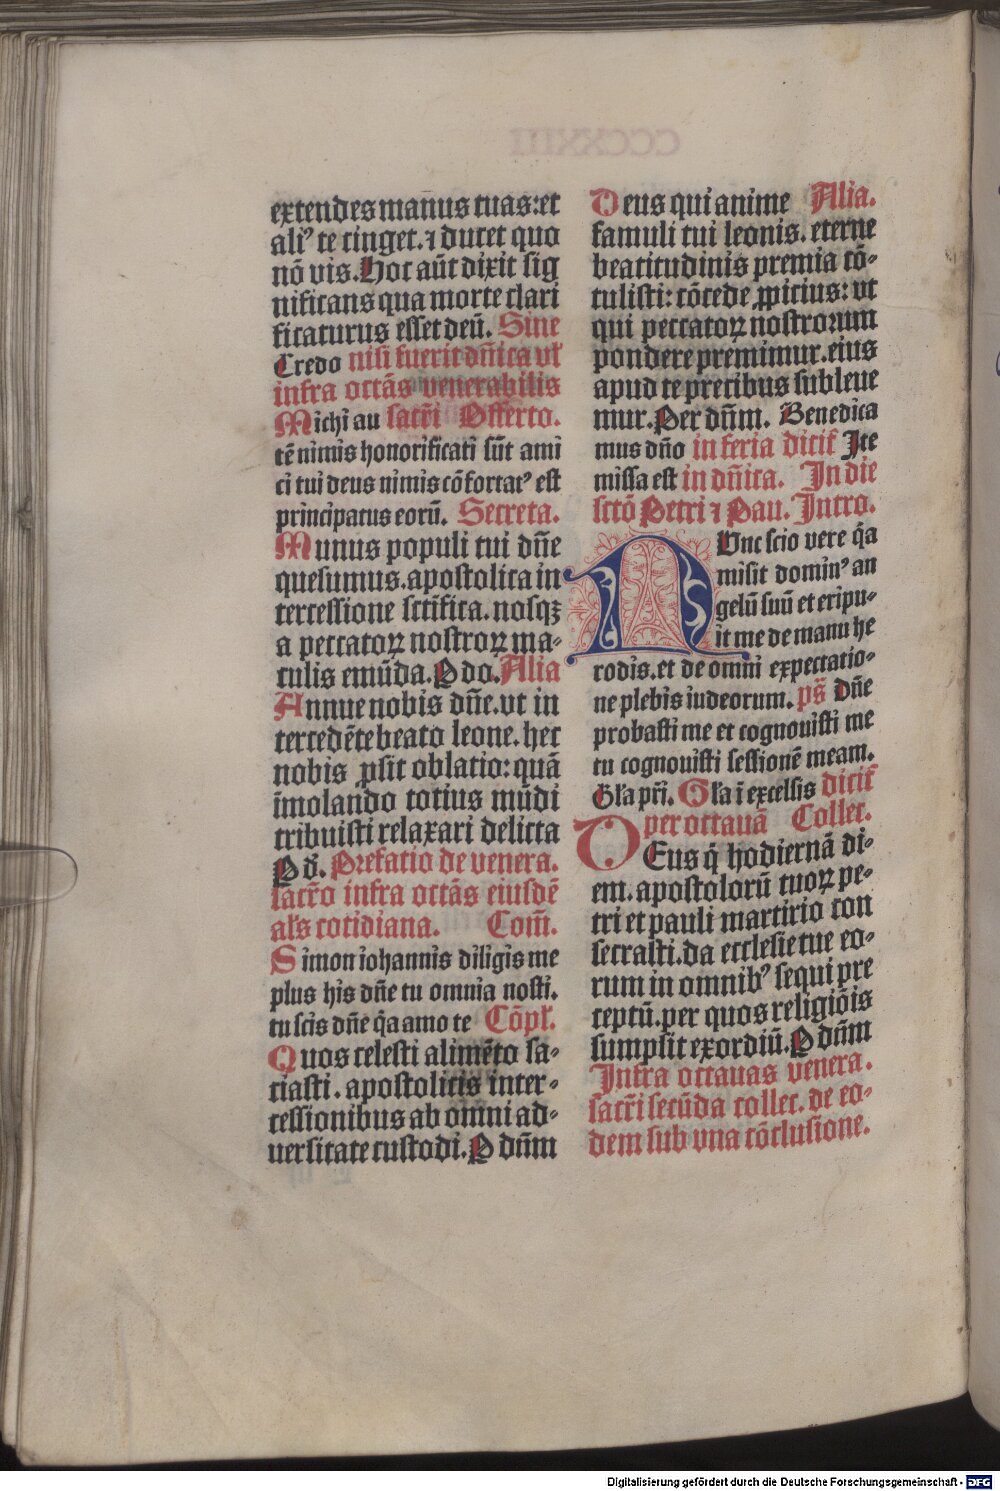 extendes man̄us tuas:et
aliꝰ te cinget.⁊ ducet quo
nō vis.Hoc aūt dixit sig
nificans qua morte clari
ficaturus esset deū. Sine
Credo nisi fuerit dn̄ica vl̄
infra octās venerabilis
Michi au sacrī Offerto.
tē nimis honorificati sūt ami
ci tui deus nimis cōfortatꝰ est
principatus eorū. Secreta.
Munus populi tui dn̄e
quesumus.apostolica in
tercessione sctīfica.nosqꝫ
a peccatoꝝ nostroꝝ ma-
culis emūda.P do.Alia
Annue nobis dn̄e.vt in
tercedēte beato leone.hec
nobis ꝓsit oblatio:quā
īmolando totius mūdi
tribuisti relaxari delicta
P d̄. Prefatio de venera.
sacr̄o infra octās eiusdē
al̄s cotidiana. Com̄.
Simon iohannis diligis me
plus his dn̄e tu omnia nosti.
tu scis dn̄e q̄a amo te Cōpl̄.
Quos celesti alimēto sa-
ciasti.apostolicis inter-
cessionibus ab omni ad-
uersitate custodi.P dn̄m
Deus qui anime Alia.
famuli tui leonis.eterne
beatitudinis premia cō-
tulisti:cōcede ꝓpicius:vt
qui peccatoꝝ nostrorum
pondere premimur.eius
apud te precibus subleue
mur.Per dn̄m. Benedica
mus dn̄o in feria dicit̄ Ite
missa est in dn̄ica. In die
sctō Petri ⁊ Pau. Intro.
NUnc scio vere q̄a
misit dominꝰ an
gelū suū et eripu-
it me de manu he
rodis.et de omni expectatio-
ne plebis iudeorum. ps̄ Dn̄e
probasti me et cognouisti me
tu cognouisti sessionē meam.
Gl̄a pr̄i. Gl̄a ī excelsis dicit̄
per octauā Collec.
DEus q̄ hodiernā di-
em.apostolorū tuoꝝ pe-
tri et pauli martirio con
secrasti.da ecclesie tue eo-
rum in omnibꝰ sequi pre
ceptū.per quos religiōis
sumpsit exordiū.P dn̄m
Infra octauas venera.
sacrī secūda collec. de eo-
dem sub vna cōclusione.
Digitalisierung gefördert durch die Deutsche Forschungsgemeinschaft - DFG